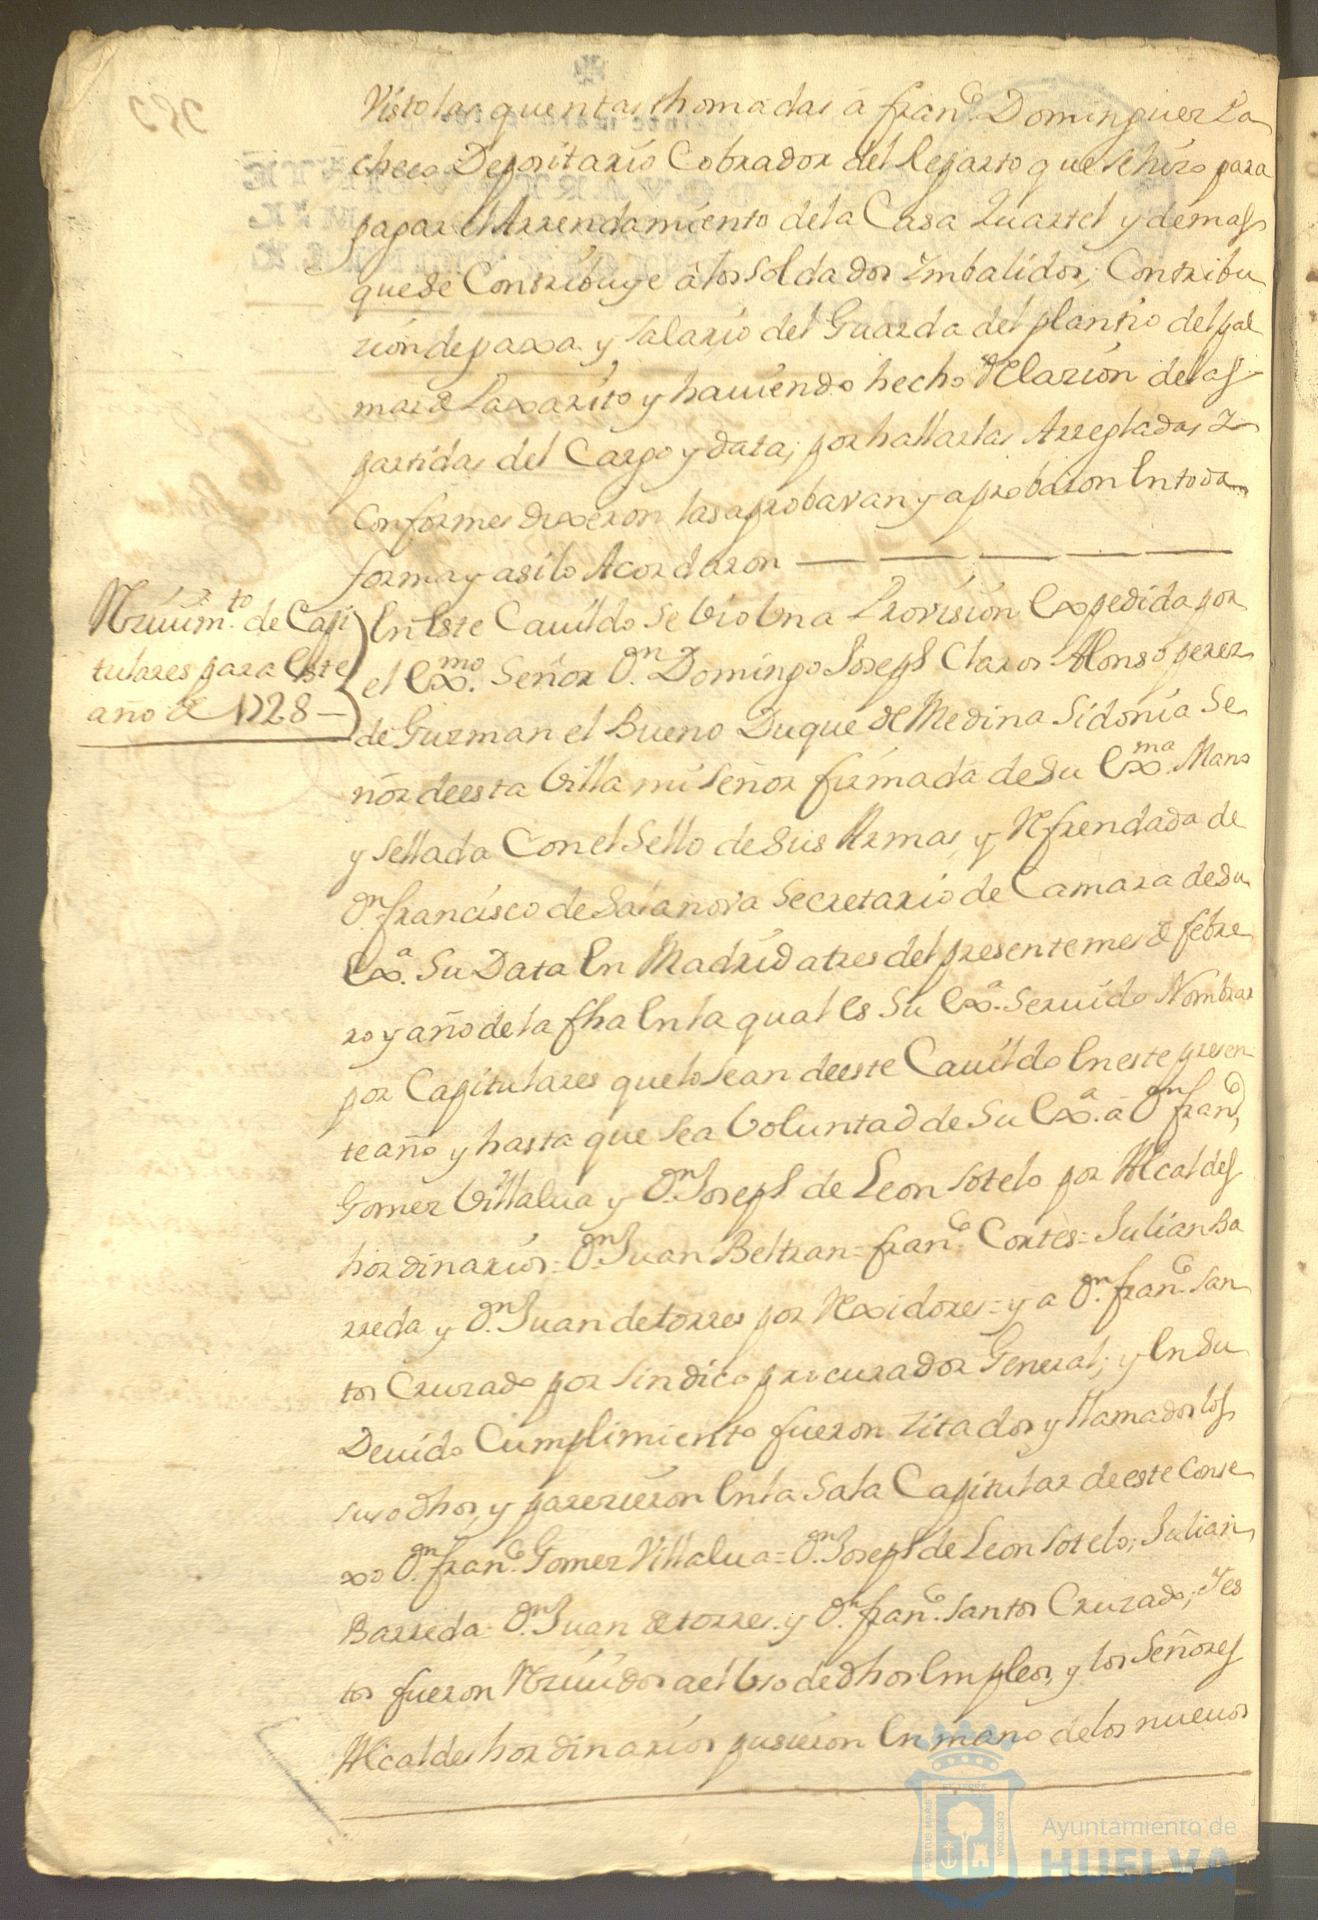 Visto las quentas thomadas â fran.co Dominguez Pa
checo Depositario Cobrador del Reparto que se hizo para
pagar el Arrendamiento de la Casa Quartel y demas
que se Contribuye â los soldados Imbalidos; Contribu
zion de paxa y salario del Guarda del plantio del pal
mar de Paxarito y hauiendo hecho Relazion de las
partidas del Cargo y data; por hallarlas Arregladas I
Conformes dixeron las aprobavan y aprobaron En toda
forma y asi lo Acordaron
Reziuim.to de Capi
tulares para Este
año de 1728
En Este Cauildo se bio Una Provision Expedida por
el Ex.mo Señor D.n Domingo Joseph Claros Alonso perez
de Guzman el Bueno Duque de Medina Sidonia Se
ñor de esta Villa mi señor firmada de su Ex.ma Mano
y sellada Con el Sello de sus Armas y Refrendada de
D.n francisco de Salanova Secretario de Camara de su
Ex.a Su Data En Madrid a tres del presente mes de febre
ro y año de la fha En la qual Es Su Ex.a Seruido Nombrar
por Capitulares que lo sean de este Cauildo En este presen
te año y hasta que sea Voluntad de Su Ex.a â D.n fran.co
Gomez Villalua y D.n Joseph de Leon Sotelo por Alcaldes
hordinarios = D.n Juan Beltran = fran.co Cortès = Julian Ba
rreda y D.n Juan de torres por Rexidores = y a D.n fran.co San
tos Cruzado por sindico procurador General; y En su
Deuido Cumplimiento fueron zitados y llamados los
suso dhos y parezieron En la Sala Capitular de este Conse
xo D.n fran.co Gomez Villalua = D.n Joseph de Leon Sotelo; Julian
Barreda = D.n Juan de torres y D.n fran.co Santos Cruzado; Y es
tos fueron Rezuidos a el Uso de dhos Empleos y los Señores
Alcaldes hordinarios pusieron En mano de los nuevos
PORTUS MARIS
CUSTODIA
Ayuntamiento de
HUELVA